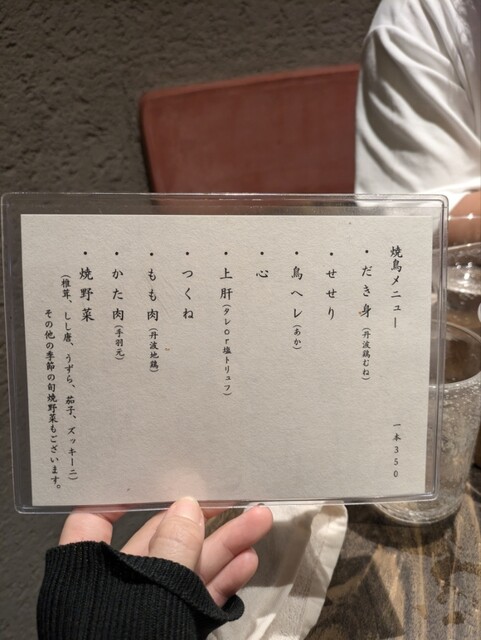 焼鳥メニュー 一本350
・だき身（丹波鶏むね）
・せせり
・鳥ヘレ（あか）
・心
・上肝（タレor塩トリュフ）
・つくね
・もも肉（丹波地鶏）
・かた肉（手羽元）
・焼野菜
（椎茸、しし唐、うずら、茄子、ズッキーニ）
その他の季節の旬焼野菜もございます。